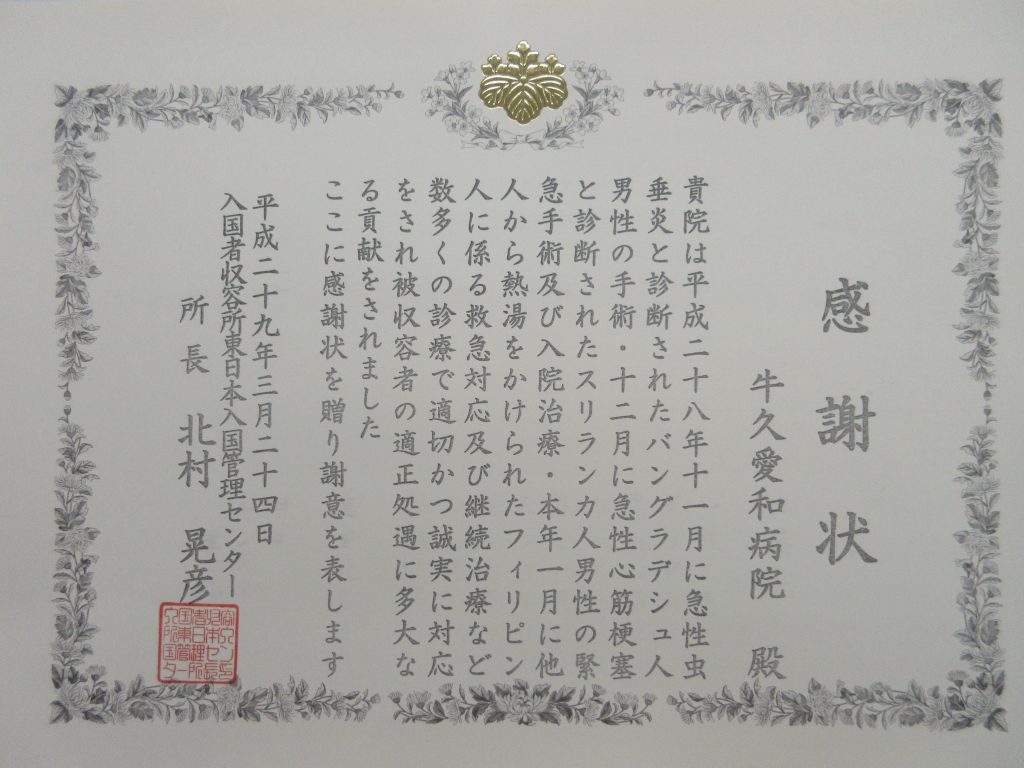 感謝状
牛久愛和病院 殿
貴院は平成二十八年十一月に急性虫
垂炎と診断されたバングラデシュ人
男性の手術・十二月に急性心筋梗塞
と診断されたスリランカ人男性の緊
急手術及び入院治療・本年一月に他
人から熱湯をかけられたフィリピン
人に係る救急対応及び継続治療など
数多くの診療で適切かつ誠実に対応
をされ被収容者の適正処遇に多大な
る貢献をされました
ここに感謝状を贈り謝意を表します
平成二十九年三月二十四日
入国者収容所東日本入国管理センター
所長 北村 晃彦